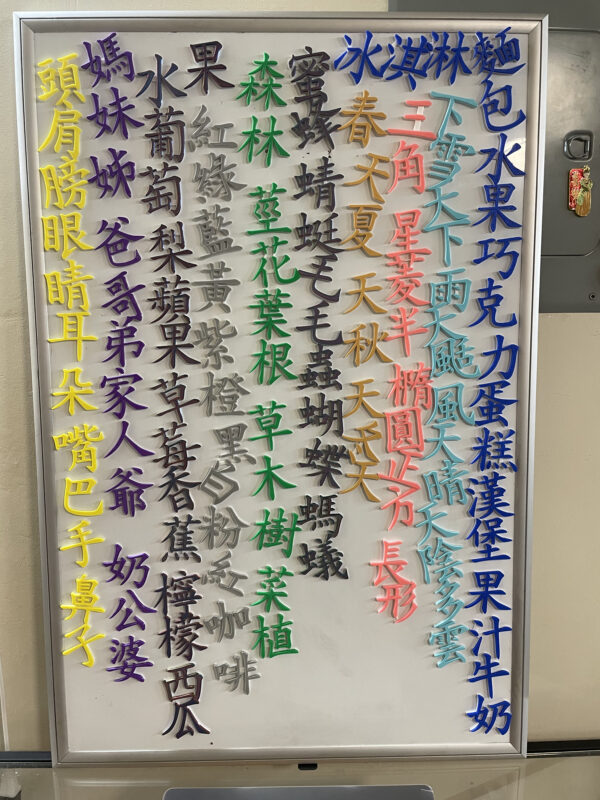 麵包水果巧克力蛋糕漢堡果汁牛奶
冰淇淋
下雪天下雨天颱風天晴天陰多雲
三角星菱半橢圓正方長形
春天夏天秋天冬天
蜜蜂蜻蜓毛毛蟲蝴蝶螞蟻
森林莖花葉根草木樹菜植
紅綠藍黃紫橙黑白粉紅咖啡
水果
葡萄梨蘋果草莓香蕉檸檬西瓜
媽妹姊爸哥弟家人爺奶公婆
頭肩膀眼睛耳朵嘴巴手鼻子